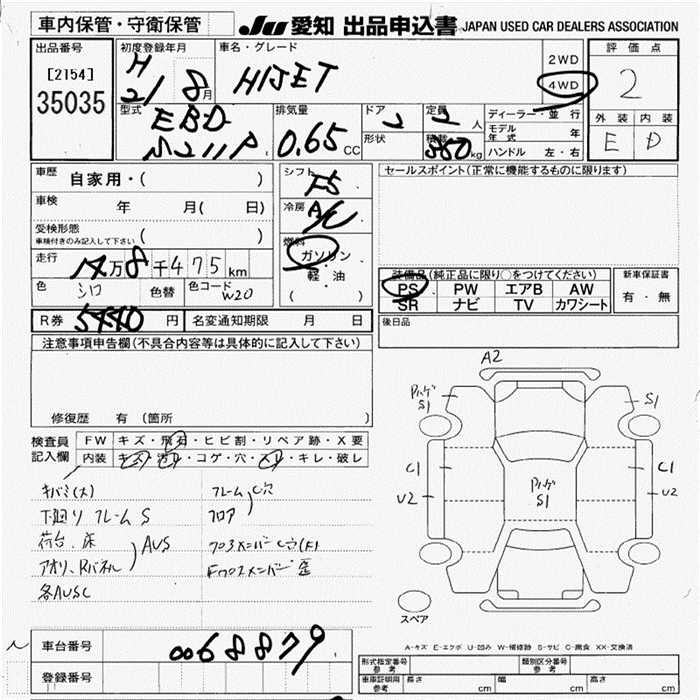 車内保管・守衛保管
JU 愛知 出品申込書 JAPAN USED CAR DEALERS ASSOCIATION
出品番号
[2154]
35035
初度登録年月
H
21/8月
車名・グレード
HIJET
2WD
4WD
評価点
2
外装 内装
E D
型式
EBD
S211P
排気量
0.65 CC
ドア
2
形状
定員
2人
積載
350kg
ディーラー・並行
モデル年式 年
ハンドル 左・右
車歴
自家用・( )
車検
年 月( 日)
受検形態
車検付きのみ記入して下さい ( )
走行
万8千475km
色
シロ
色替
色コード
W20
シフト
F5
冷房
A/C
燃料
ガソリン
・
軽・油
( )
セールスポイント(正常に機能するものに限ります)
装備品(純正品に限り○をつけてください)
PS PW エアB AW
SR ナビ TV カワシート
新車保証書
有・無
後日品
R券 5440円
名変通知期限 月 日
注意事項申告欄(不具合内容等は具体的に記入して下さい)
修復歴 有 (箇所 )
検査員
記入欄
FW キズ・飛石・ヒビ割・リペア跡・X要
内装 キズ・汚レ・コゲ・穴・スレ・キレ・破レ
キバミ(大)
下廻り フレーム S
荷台、床
アオリ、Rパネル
AUS
各AUSC
フレーム
フロア
C穴
クロスメンバー C穴(F)
Fクロスメンバー 歪
A2
S1
S1
C1
U2
S1
C1
U2
スペア
A-キズ E-エクボ U-凹み W-補修跡 S-サビ C-腐食 XX-交換済
車台番号
0068879
登録番号
型式指定番号
参考
類別区分番号
参考
車庫証明用
参考
長さ cm
幅 cm
高さ cm